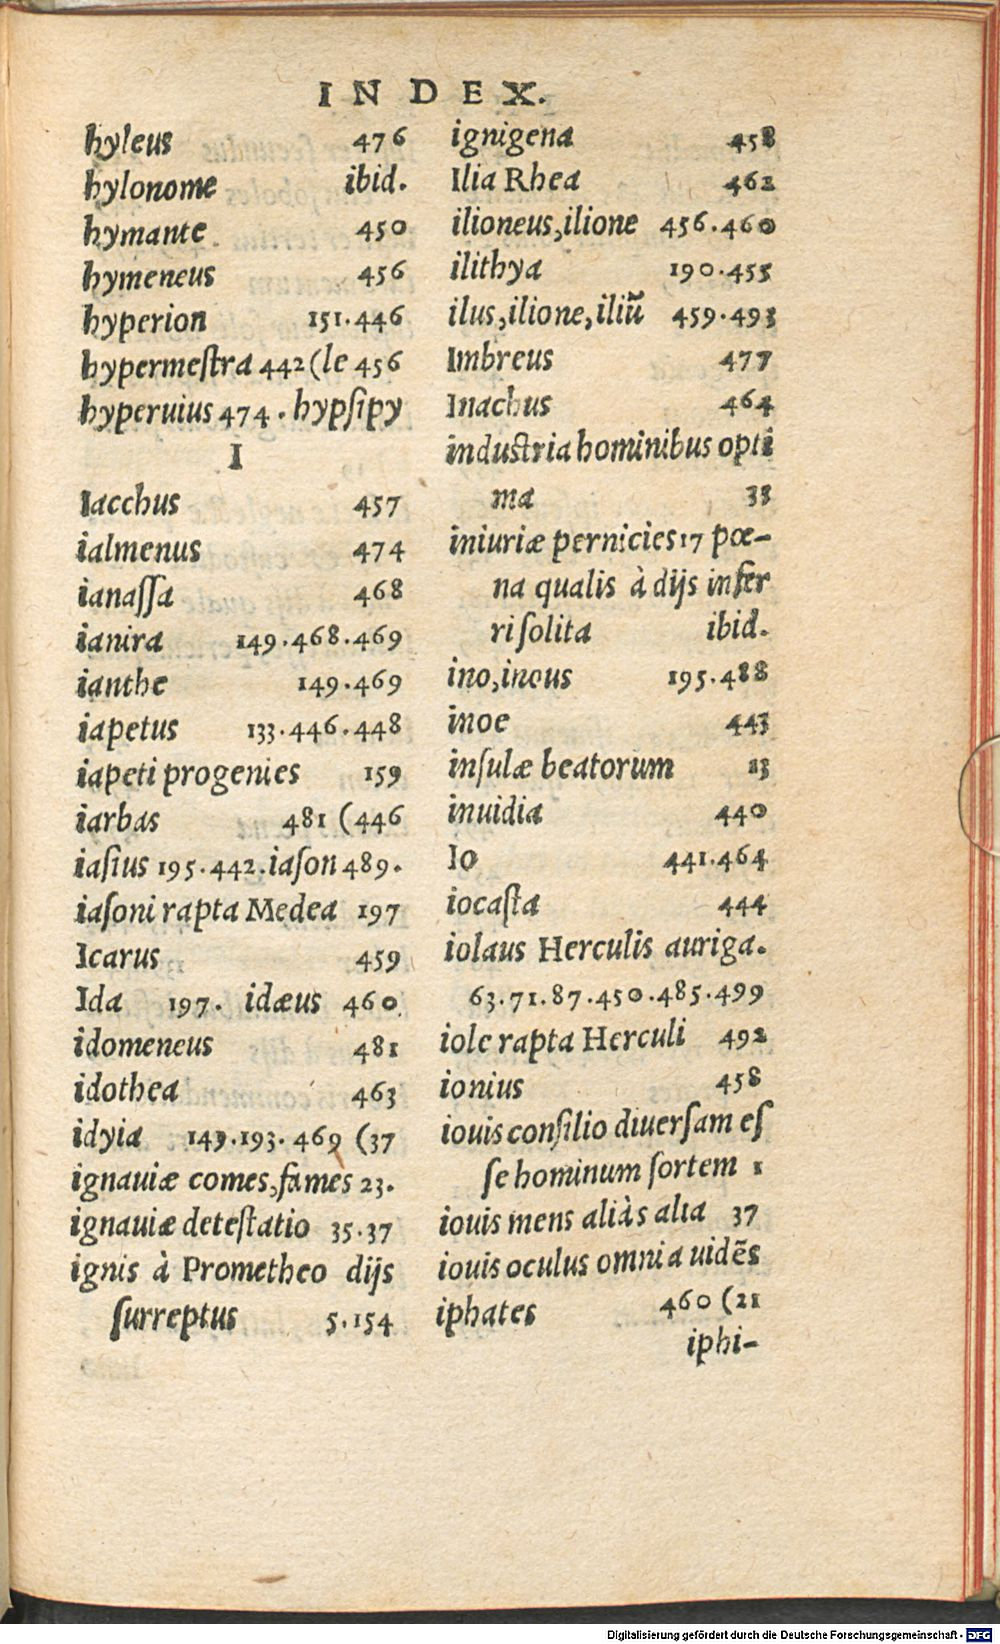 INDEX.
hyleus 476
hylonome ibid.
hymante 450
hymeneus 456
hyperion 151.446
hypermeſtra 442 (le 456
hyperuius 474. hypſipy
I
Iacchus 457
ialmenus 474
ianaſſa 468
ianira 149.468.469
ianthe 149.469
iapetus 133.446.448
iapeti progenies 159
iarbas 481 (446
iaſius 195.442. iaſon 489.
iaſoni rapta Medea 197
Icarus 459
Ida 197. idæus 460
idomeneus 481
idothea 463
idyia 149.193.469 (37
ignauiæ comes, fames 23.
ignauiæ deteſtatio 35.37
ignis à Prometheo dijs
ſurreptus 5.154
ignigena 458
Ilia Rhea 462
ilioneus, ilione 456.460
ilithya 190.455
ilus, ilione, iliū 459.493
Imbreus 477
Inachus 464
induſtria hominibus opti
ma 33
iniuriæ pernicies 17 pœ-
na qualis à dijs infer
ri ſolita ibid.
ino, inous 195.488
inoe 443
inſulæ beatorum 13
inuidia 440
Io 441.464
iocaſta 444
iolaus Herculis auriga.
63.71.87.450.485.499
iole rapta Herculi 492
ionius 458
iouis conſilio diuerſam eſ
ſe hominum ſortem 1
iouis mens aliàs alia 37
iouis oculus omnia uidēs
iphates 460 (21
iphi-
Digitalisierung gefördert durch die Deutsche Forschungsgemeinschaft - DFG